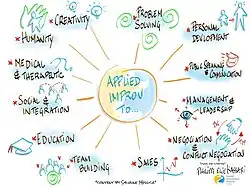 PROBLEM
SOLVING
CREATIVITY
HUMANITY
PERSONAL
DEVELOPMENT
MEDICAL
& THERAPEUTIC
APPLIED
IMPROV
TO...
PUBLIC SPEAKING &
COMMUNICATION
SOCIAL &
INTEGRATION
MANAGEMENT
& LEADERSHIP
EDUCATION
NEGOCIATION
& CONFLICT NEGOCIATION
TEAM
BUILDING
SALES